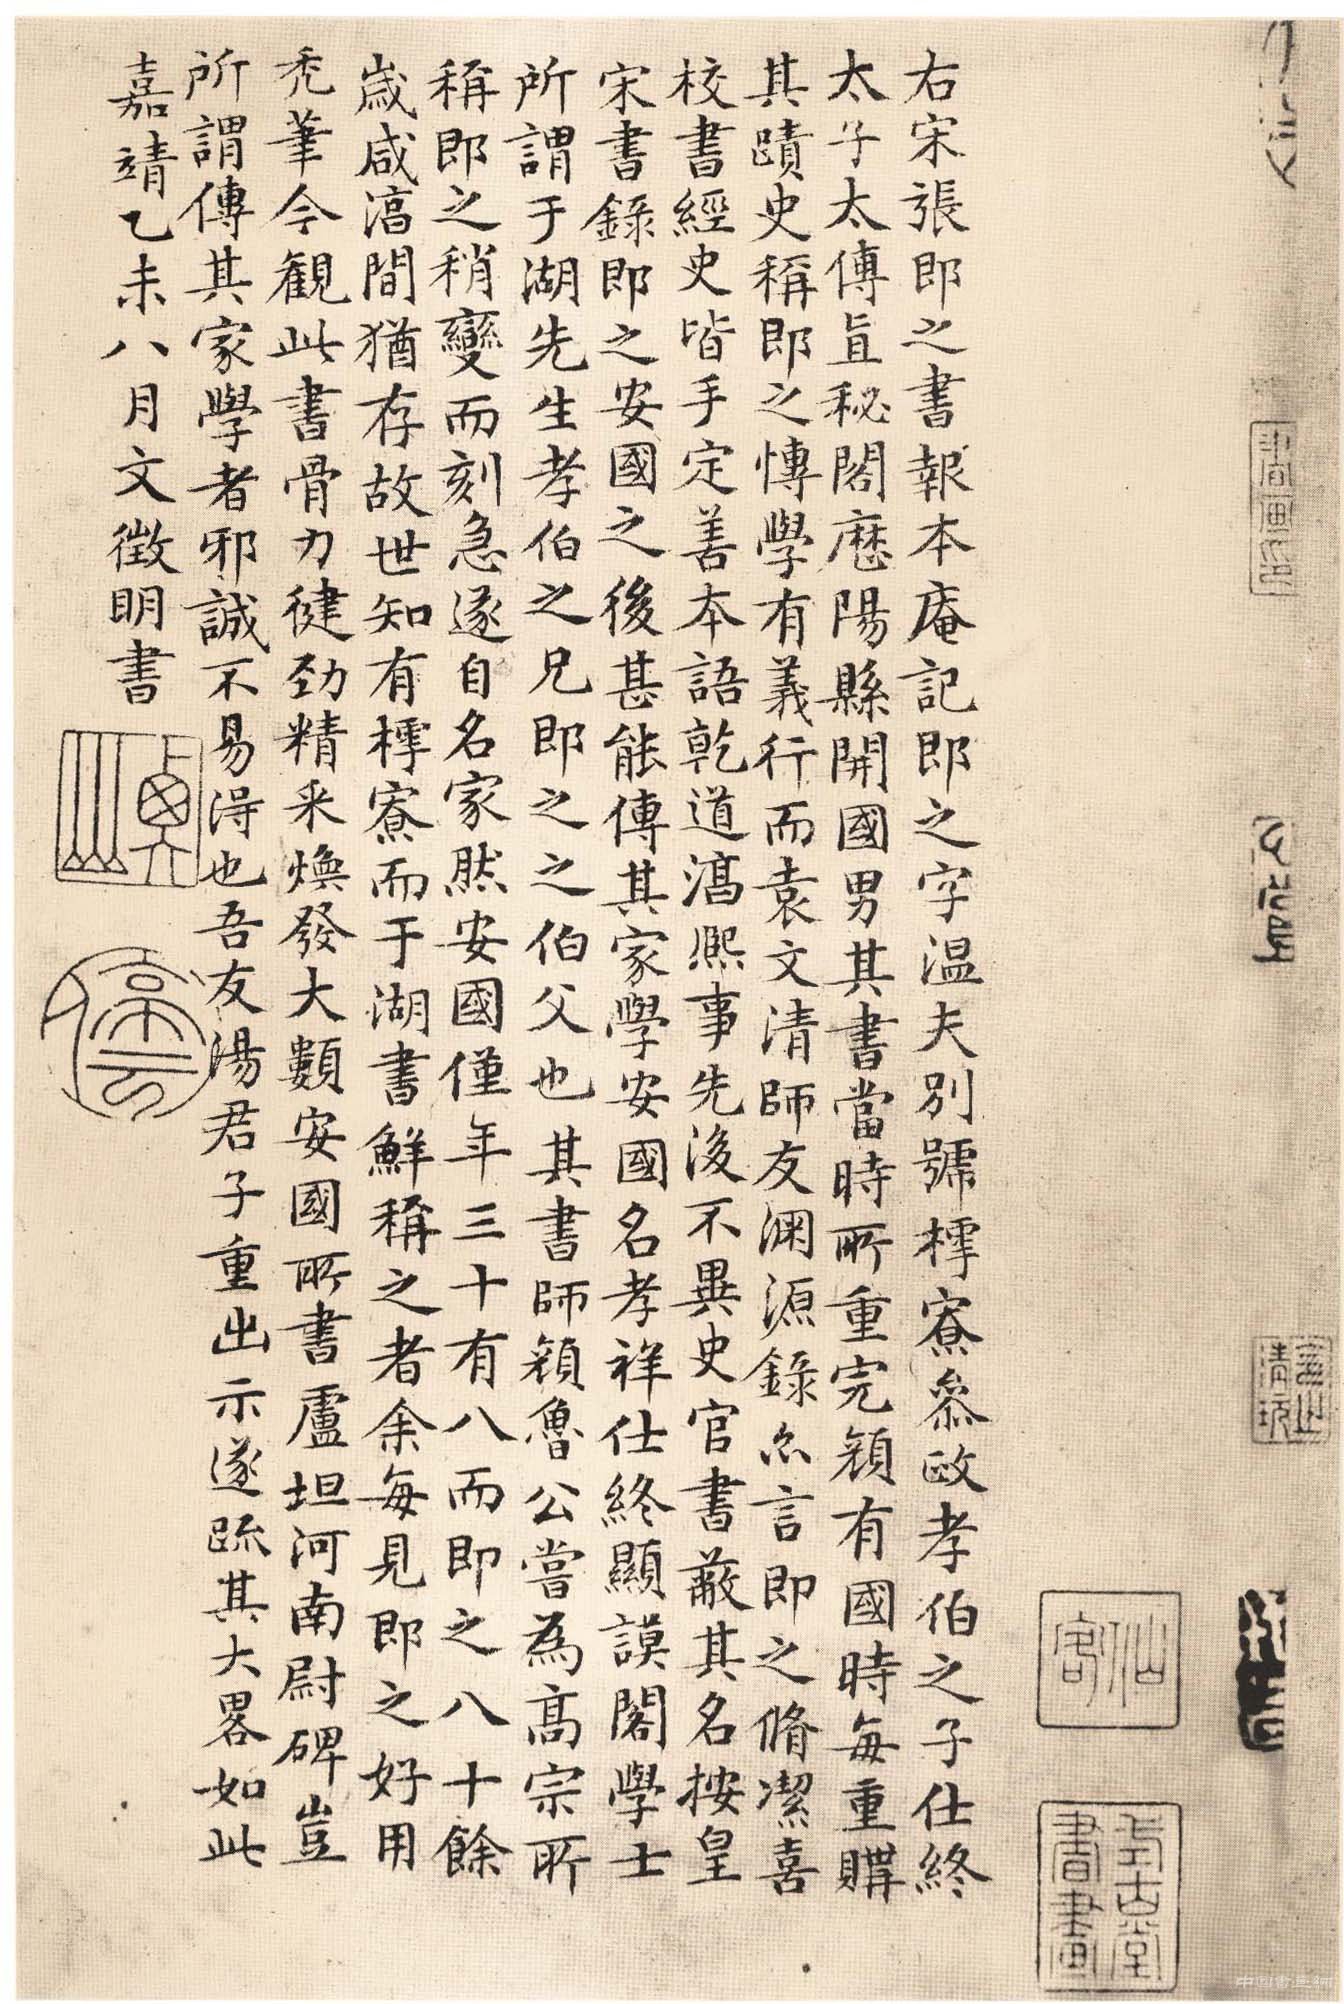 右宋張即之書報本庵記即之字温夫別號樗寮叅政孝伯之子仕終
太子太傅直秘閣歷陽縣開國男其書當時所重完顏有國時每重購
其蹟史稱即之愽學有義行而袁文清師友淵源錄亦言即之脩潔喜
校書經史皆手定善本語乾道淳熙事先後不異史官書蔽其名按皇
宋書錄即之安國之後甚能傳其家學安國名孝祥仕終顯謨閣學士
所謂于湖先生孝伯之兄即之之伯父也其書師顏魯公嘗為高宗所
稱即之稍變而刻急遂自名家然安國僅年三十有八而即之八十餘
歲咸淳間猶存故世知有樗寮而于湖書鮮稱之者余每見即之好用
禿筆今觀此書骨力健勁精采煥發大類安國所書盧坦河南尉碑豈
所謂傳其家學者邪誠不易得也吾友湯君子重出示遂疏其大畧如此
嘉靖乙未八月文徵明書
仙客
式古堂書畫
中国書画網